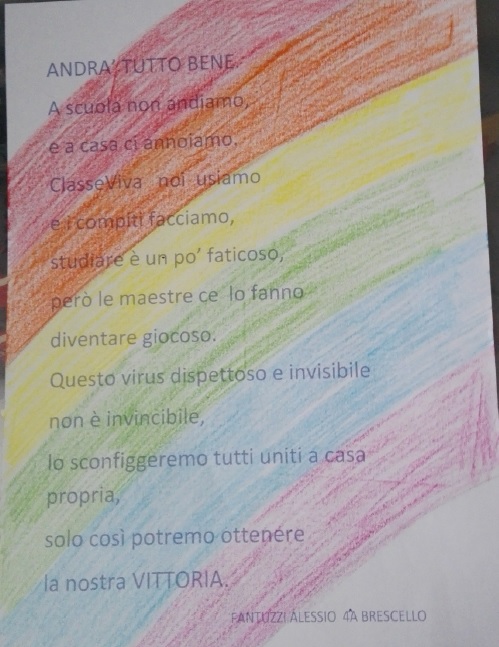 ANDRA' TUTTO BENE.
A scuola non andiamo,
e a casa ci annoiamo.
ClasseViva noi usiamo
e i compiti facciamo,
studiare è un po' faticoso,
però le maestre ce lo fanno
diventare giocoso.
Questo virus dispettoso e invisibile
non è invincibile,
lo sconfiggeremo tutti uniti a casa
propria,
solo così potremo ottenere
la nostra VITTORIA.
PANTUZZI ALESSIO 4A BRESCELLO